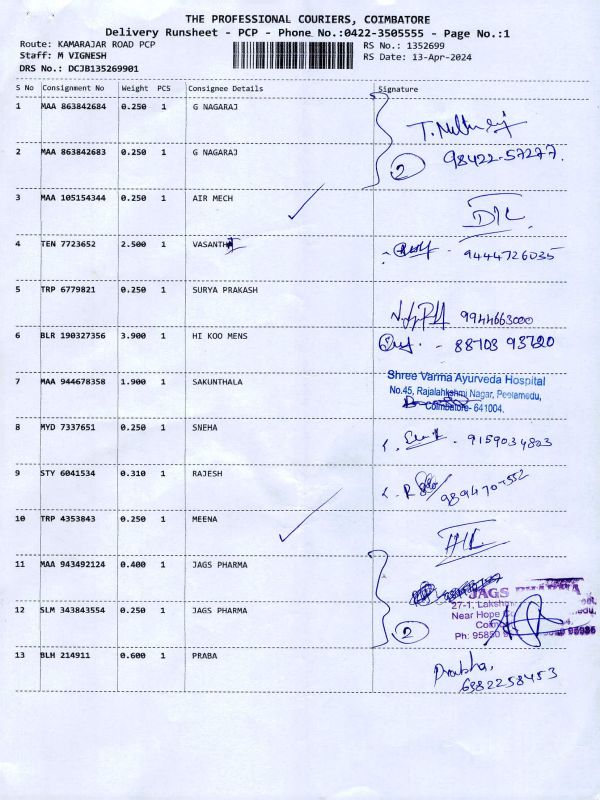 THE PROFESSIONAL COURIERS, COIMBATORE
Delivery Runsheet - PCP - Phone No.:0422-3505555 - Page No.:1
Route: KAMARAJAR ROAD PCP RS No.: 1352699
Staff: M VIGNESH RS Date: 13-Apr-2024
DRS No.: DCJB135269901
S No Consignment No Weight PCS Consignee Details Signature
1 MAA 863842684 0.250 1 G NAGARAJ
2 MAA 863842683 0.250 1 G NAGARAJ 2 98422-57277.
3 MAA 105154344 0.250 1 AIR MECH
4 TEN 7723652 2.500 1 VASANTH 9444726035
5 TRP 6779821 0.250 1 SURYA PRAKASH 9944663000
6 BLR 190327356 3.900 1 HI KOO MENS - 88703 93720
7 MAA 944678358 1.900 1 SAKUNTHALA Shree Varma Ayurveda Hospital
No.45, Rajalahkshmi Nagar, Peelamedu,
Coimbatore- 641004.
8 MYD 7337651 0.250 1 SNEHA 9159034803
9 STY 6041534 0.310 1 RAJESH
10 TRP 4353843 0.250 1 MEENA
11 MAA 943492124 0.400 1 JAGS PHARMA
12 SLM 343843554 0.250 1 JAGS PHARMA 2
JAGS PHARMA
27-1,
Near Hope
Ph: 95850
13 BLH 214911 0.600 1 PRABA Prabha,
6382258453